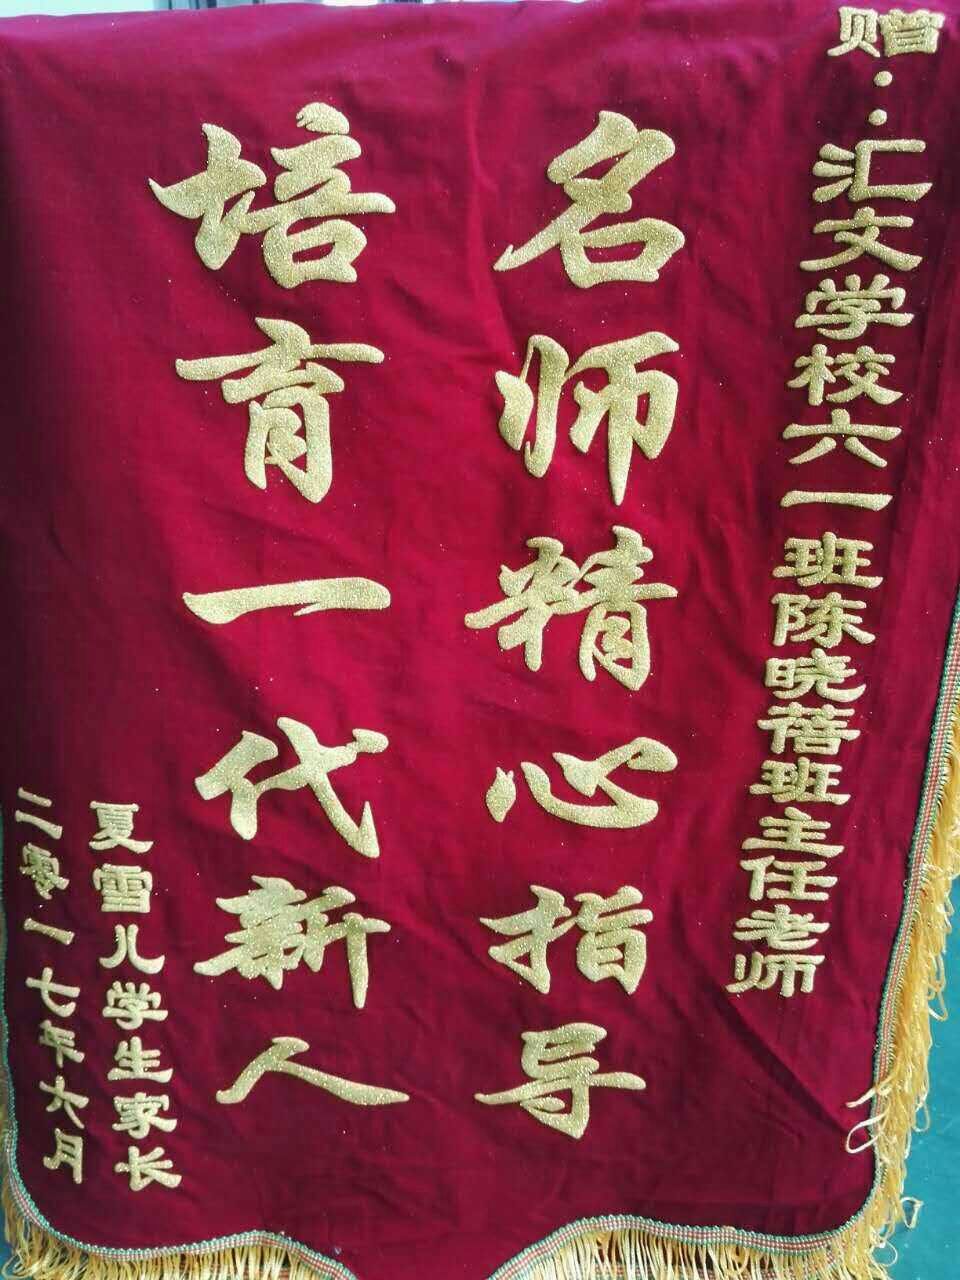 赠：汇文学校六一班陈晓蓓班主任老师
名师精心指导
培育一代新人
夏雪儿学生家长
二零一七年六月